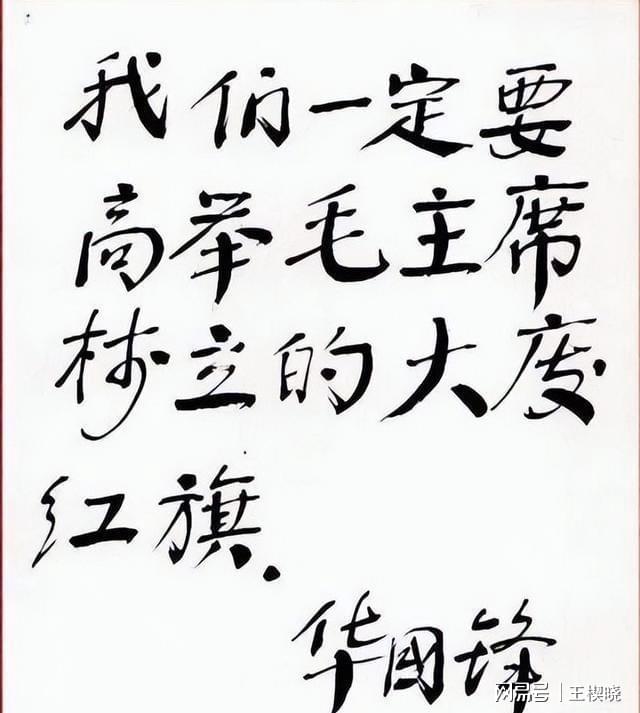 我们一定要
高举毛主席
树立的大庆
红旗.
华國锋
网易号 | 王楔晓